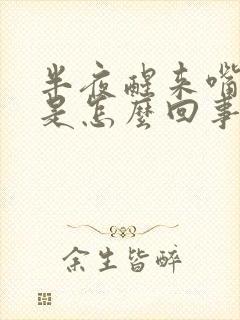 半夜醒来嘴
是怎麽回事
余生皆醉